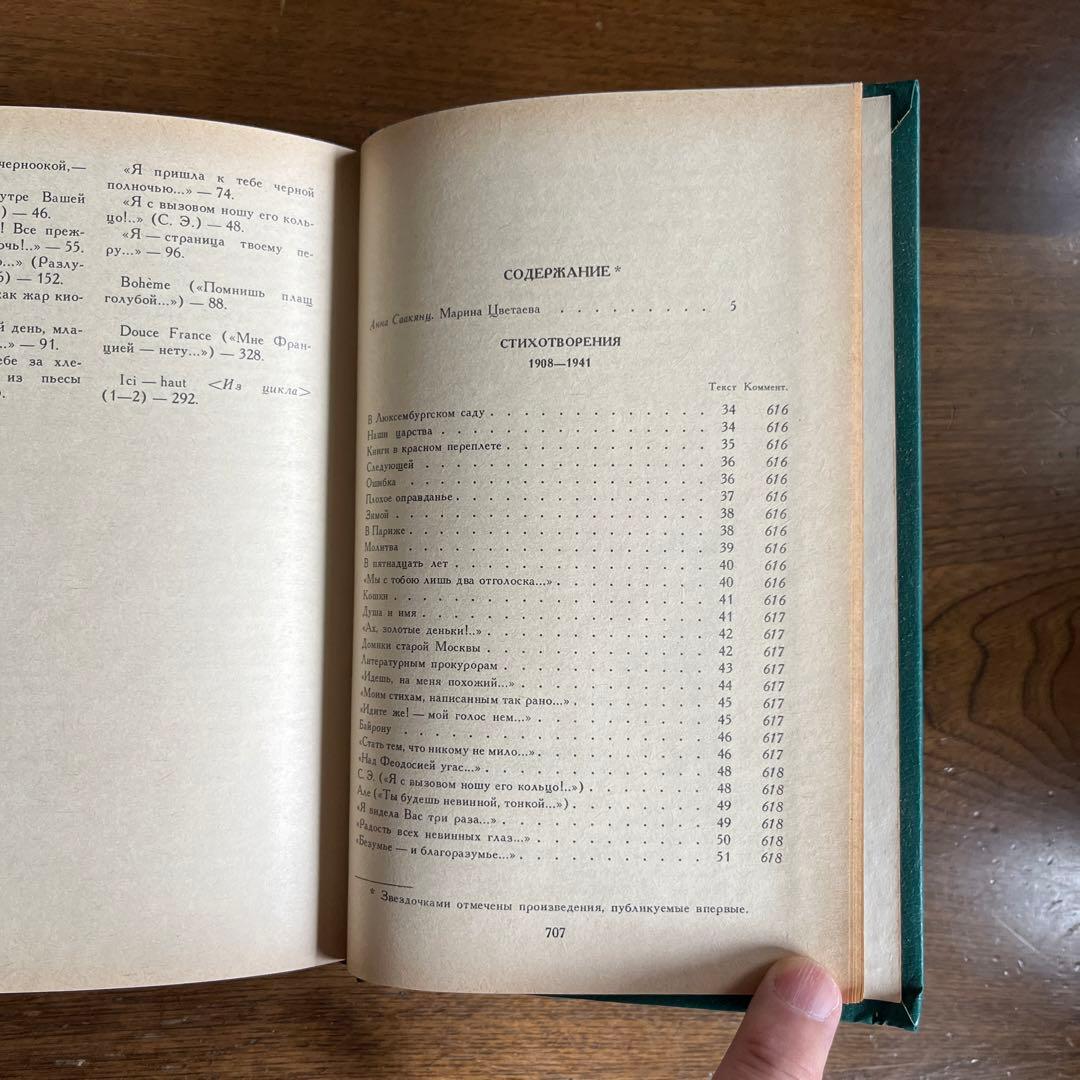 черноокой,—
утре Вашей
) — 46.
! Все преж-
очь!..» — 55.
...» (Разлу-
) — 152.
как жар кио-
й день, мла-
..» — 91.
ебе за хле-
из пьесы
«Я пришла к тебе черной
полночью...» — 74.
«Я с вызовом ношу его коль-
цо!..» (С. Э.) — 48.
«Я — страница твоему пе-
ру...» — 96.
Bohème («Помнишь плащ
голубой...») — 88.
Douce France («Мне Фран-
цией — нету...») — 328.
Ici — haut <Из цикла>
(1—2) — 292.
СОДЕРЖАНИЕ *
Анна Саакянц. Марина Цветаева . . . . . . . . . 5
СТИХОТВОРЕНИЯ
1908—1941
Текст Коммент.
В Люксембургском саду . . . . . . . . . . . . . 34 616
Наши царства . . . . . . . . . . . . . . . . 34 616
Книги в красном переплете . . . . . . . . . . . . 35 616
Следующей . . . . . . . . . . . . . . . . . 36 616
Ошибка . . . . . . . . . . . . . . . . . . 36 616
Плохое оправданье . . . . . . . . . . . . . . . 37 616
Зимой . . . . . . . . . . . . . . . . . . . 38 616
В Париже . . . . . . . . . . . . . . . . . . 38 616
Молитва . . . . . . . . . . . . . . . . . . 39 616
В пятнадцать лет . . . . . . . . . . . . . . . 40 616
«Мы с тобою лишь два отголоска...» . . . . . . . . . 40 616
Кошки . . . . . . . . . . . . . . . . . . . 41 616
Душа и имя . . . . . . . . . . . . . . . . . 41 617
«Ах, золотые деньки!..» . . . . . . . . . . . . . 42 617
Домики старой Москвы . . . . . . . . . . . . . 42 617
Литературным прокурорам . . . . . . . . . . . . 43 617
«Идешь, на меня похожий...» . . . . . . . . . . . 44 617
«Моим стихам, написанным так рано...» . . . . . . . . 45 617
«Идите же! — мой голос нем...» . . . . . . . . . . 45 617
Байрону . . . . . . . . . . . . . . . . . . 46 617
«Стать тем, что никому не мило...» . . . . . . . . . 46 617
«Над Феодосией угас...» . . . . . . . . . . . . . 48 618
С. Э. («Я с вызовом ношу его кольцо!..») . . . . . . . 48 618
Але («Ты будешь невинной, тонкой...») . . . . . . . . 49 618
«Я видела Вас три раза...» . . . . . . . . . . . . 49 618
«Радость всех невинных глаз...» . . . . . . . . . . 50 618
«Безумье — и благоразумье...» . . . . . . . . . . . 51 618
* Звездочками отмечены произведения, публикуемые впервые.
707